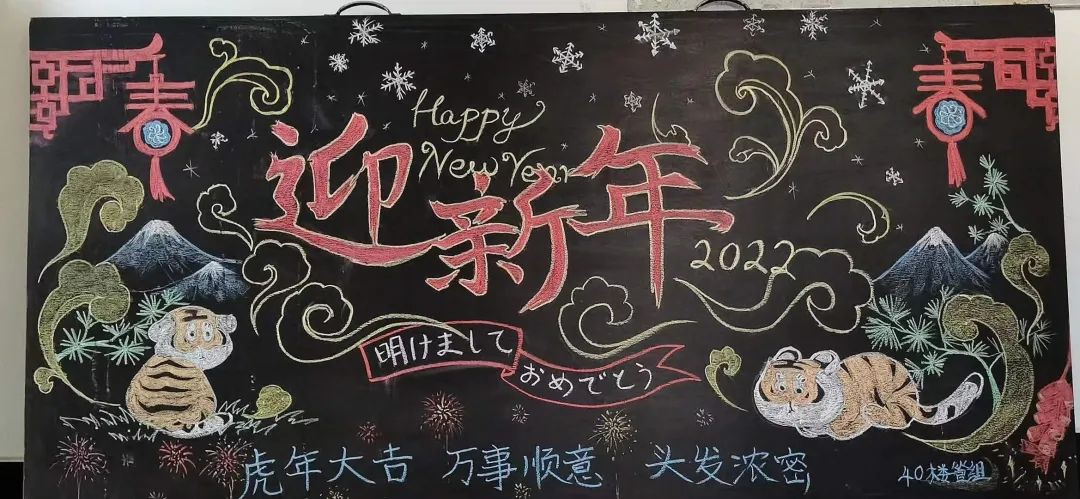 春
春
Happy
New Year
迎新年
2022
明けまして
おめでとう
虎年大吉 万事顺意 头发浓密
40楼管组